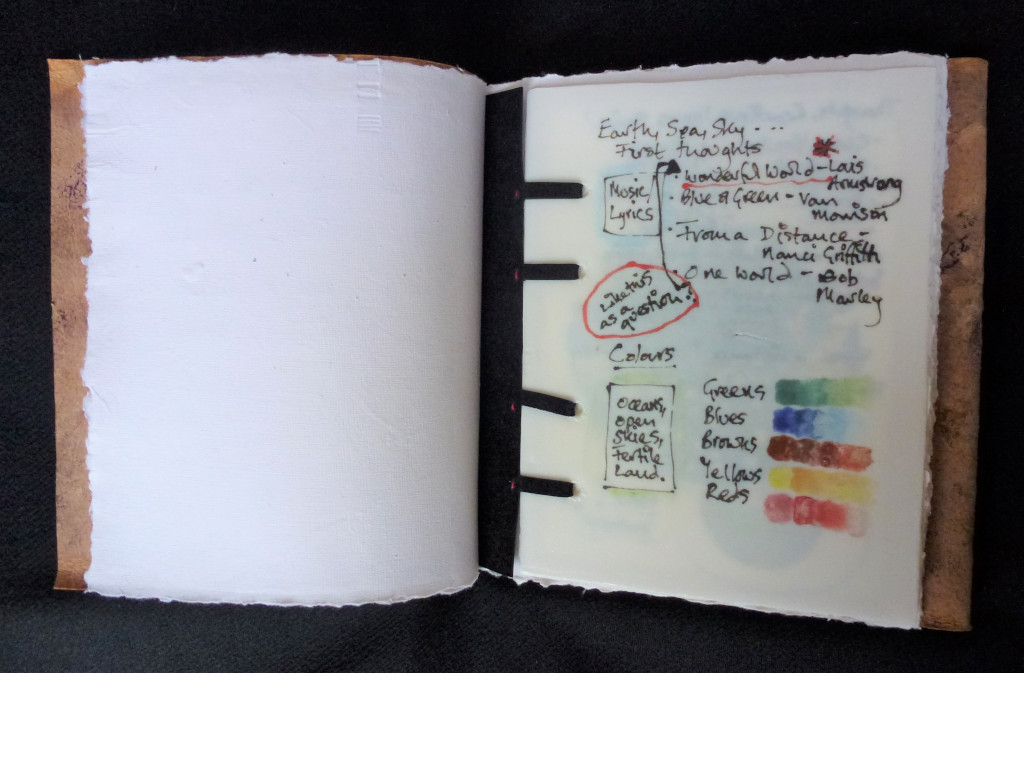 Earth, Sea, Sky....
First thoughts
Music/
Lyrics
· Wonderful World - Lois
Armstrong
· Blue & Green - Van
Morrison
· From a Distance -
Nanci Griffith
· One World - Bob
Marley
Like this
as a
question?
Colours
Oceans,
Open
Skies,
Fertile
Land.
Greens
Blues
Browns
Yellows
Reds